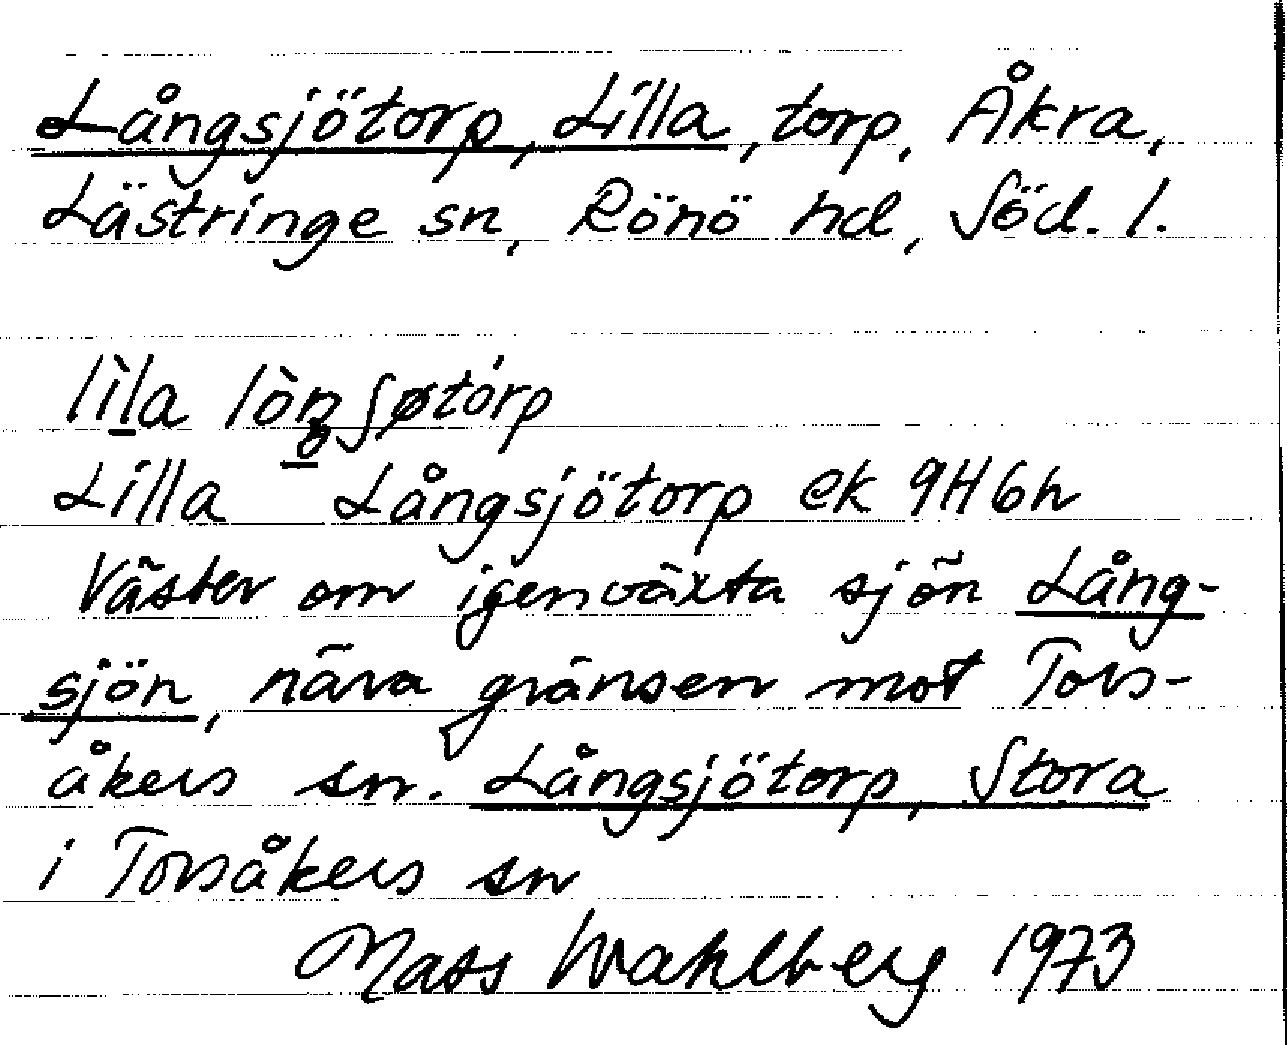 Långsjötorp, Lilla, torp, Åkra,
Lästringe sn, Rönö hd, Söd. l.
Lilla Långsjötorp ek 9H6h
Väster om igenväxta sjön Lång-
sjön, nära gränsen mot Tors-
åkers sn. Långsjötorp, Stora
i Torsåkers sn
Mats Wahlberg 1973